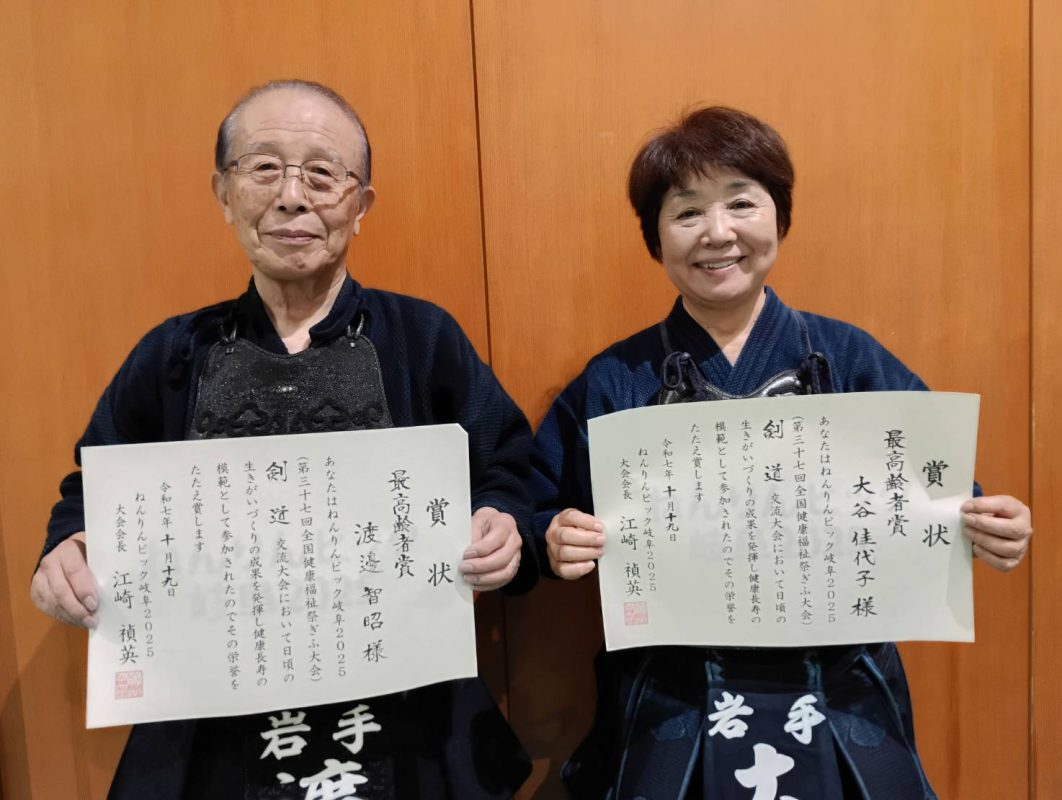 賞状
最高齢者賞
渡邊智昭様
あなたはねんりんピック岐阜2025
(第三十七回全国健康福祉祭ぎふ大会)
剣道交流大会において日頃の
生きがいづくりの成果を発揮し健康長寿の
模範として参加されたのでその栄誉を
たたえ賞します
令和七年十月十九日
ねんりんピック岐阜2025
大会会長 江崎禎英
岩手
渡
賞状
最高齢者賞
大谷佳代子様
あなたはねんりんピック岐阜2025
(第三十七回全国健康福祉祭ぎふ大会)
剣道交流大会において日頃の
生きがいづくりの成果を発揮し健康長寿の
模範として参加されたのでその栄誉を
たたえ賞します
令和七年十月十九日
ねんりんピック岐阜2025
大会会長 江崎禎英
岩手
大